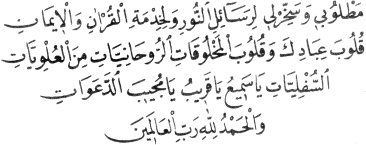 مَطْلُوبِي وَسَخِّرْلِي لِرَسَائِلِ النُّورِ وَلِخِدْمَةِ الْقُرْاٰنِ وَالْاِيمَانِ
قُلُوبَ عِبَادِكَ وَقُلُوبَ الْمَخْلُوقَاتِ الرُّوحَانِيَّاتِ مِنَ الْعُلْوِيَّاتِ
السُّفْلِيَّاتِ يَاسَمِيعُ يَاقَرِيبُ يَامُجِيبَ الدَّعَوَاتِ
وَالْحَمْدُ لِلّٰهِ رَبِّ الْعَالَمِينَ